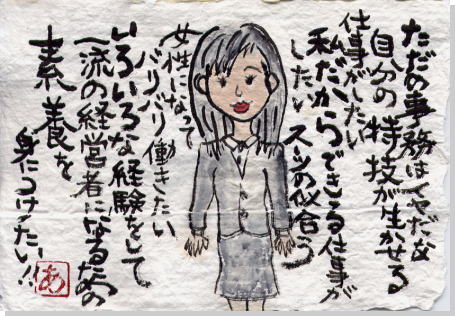 ただの事務はイヤだな
自分の特技が生かせる
仕事がしたい
私だからできる仕事が
したい
スーツの似合う
女性になって
バリバリ働きたい
いろいろな経験をして
一流の経営者になるための
素養を
身につけたい!!
あ